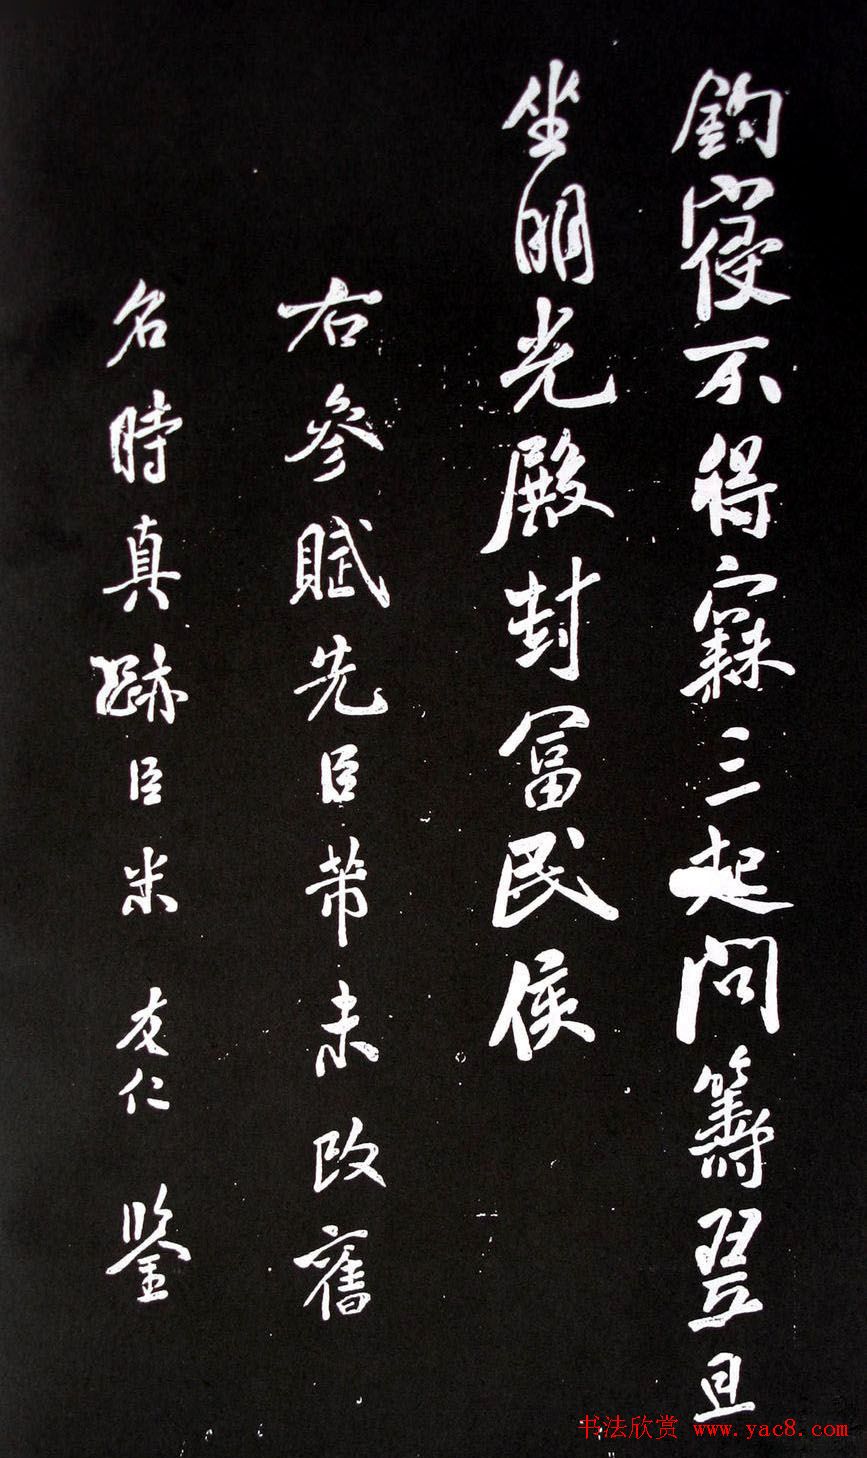 鈞寢不得寐三起問籌翌旦
坐明光殿封富民侯
右參賦先臣芾未改舊
名時真跡臣米友仁鑒
书法欣赏 www.yac8.com